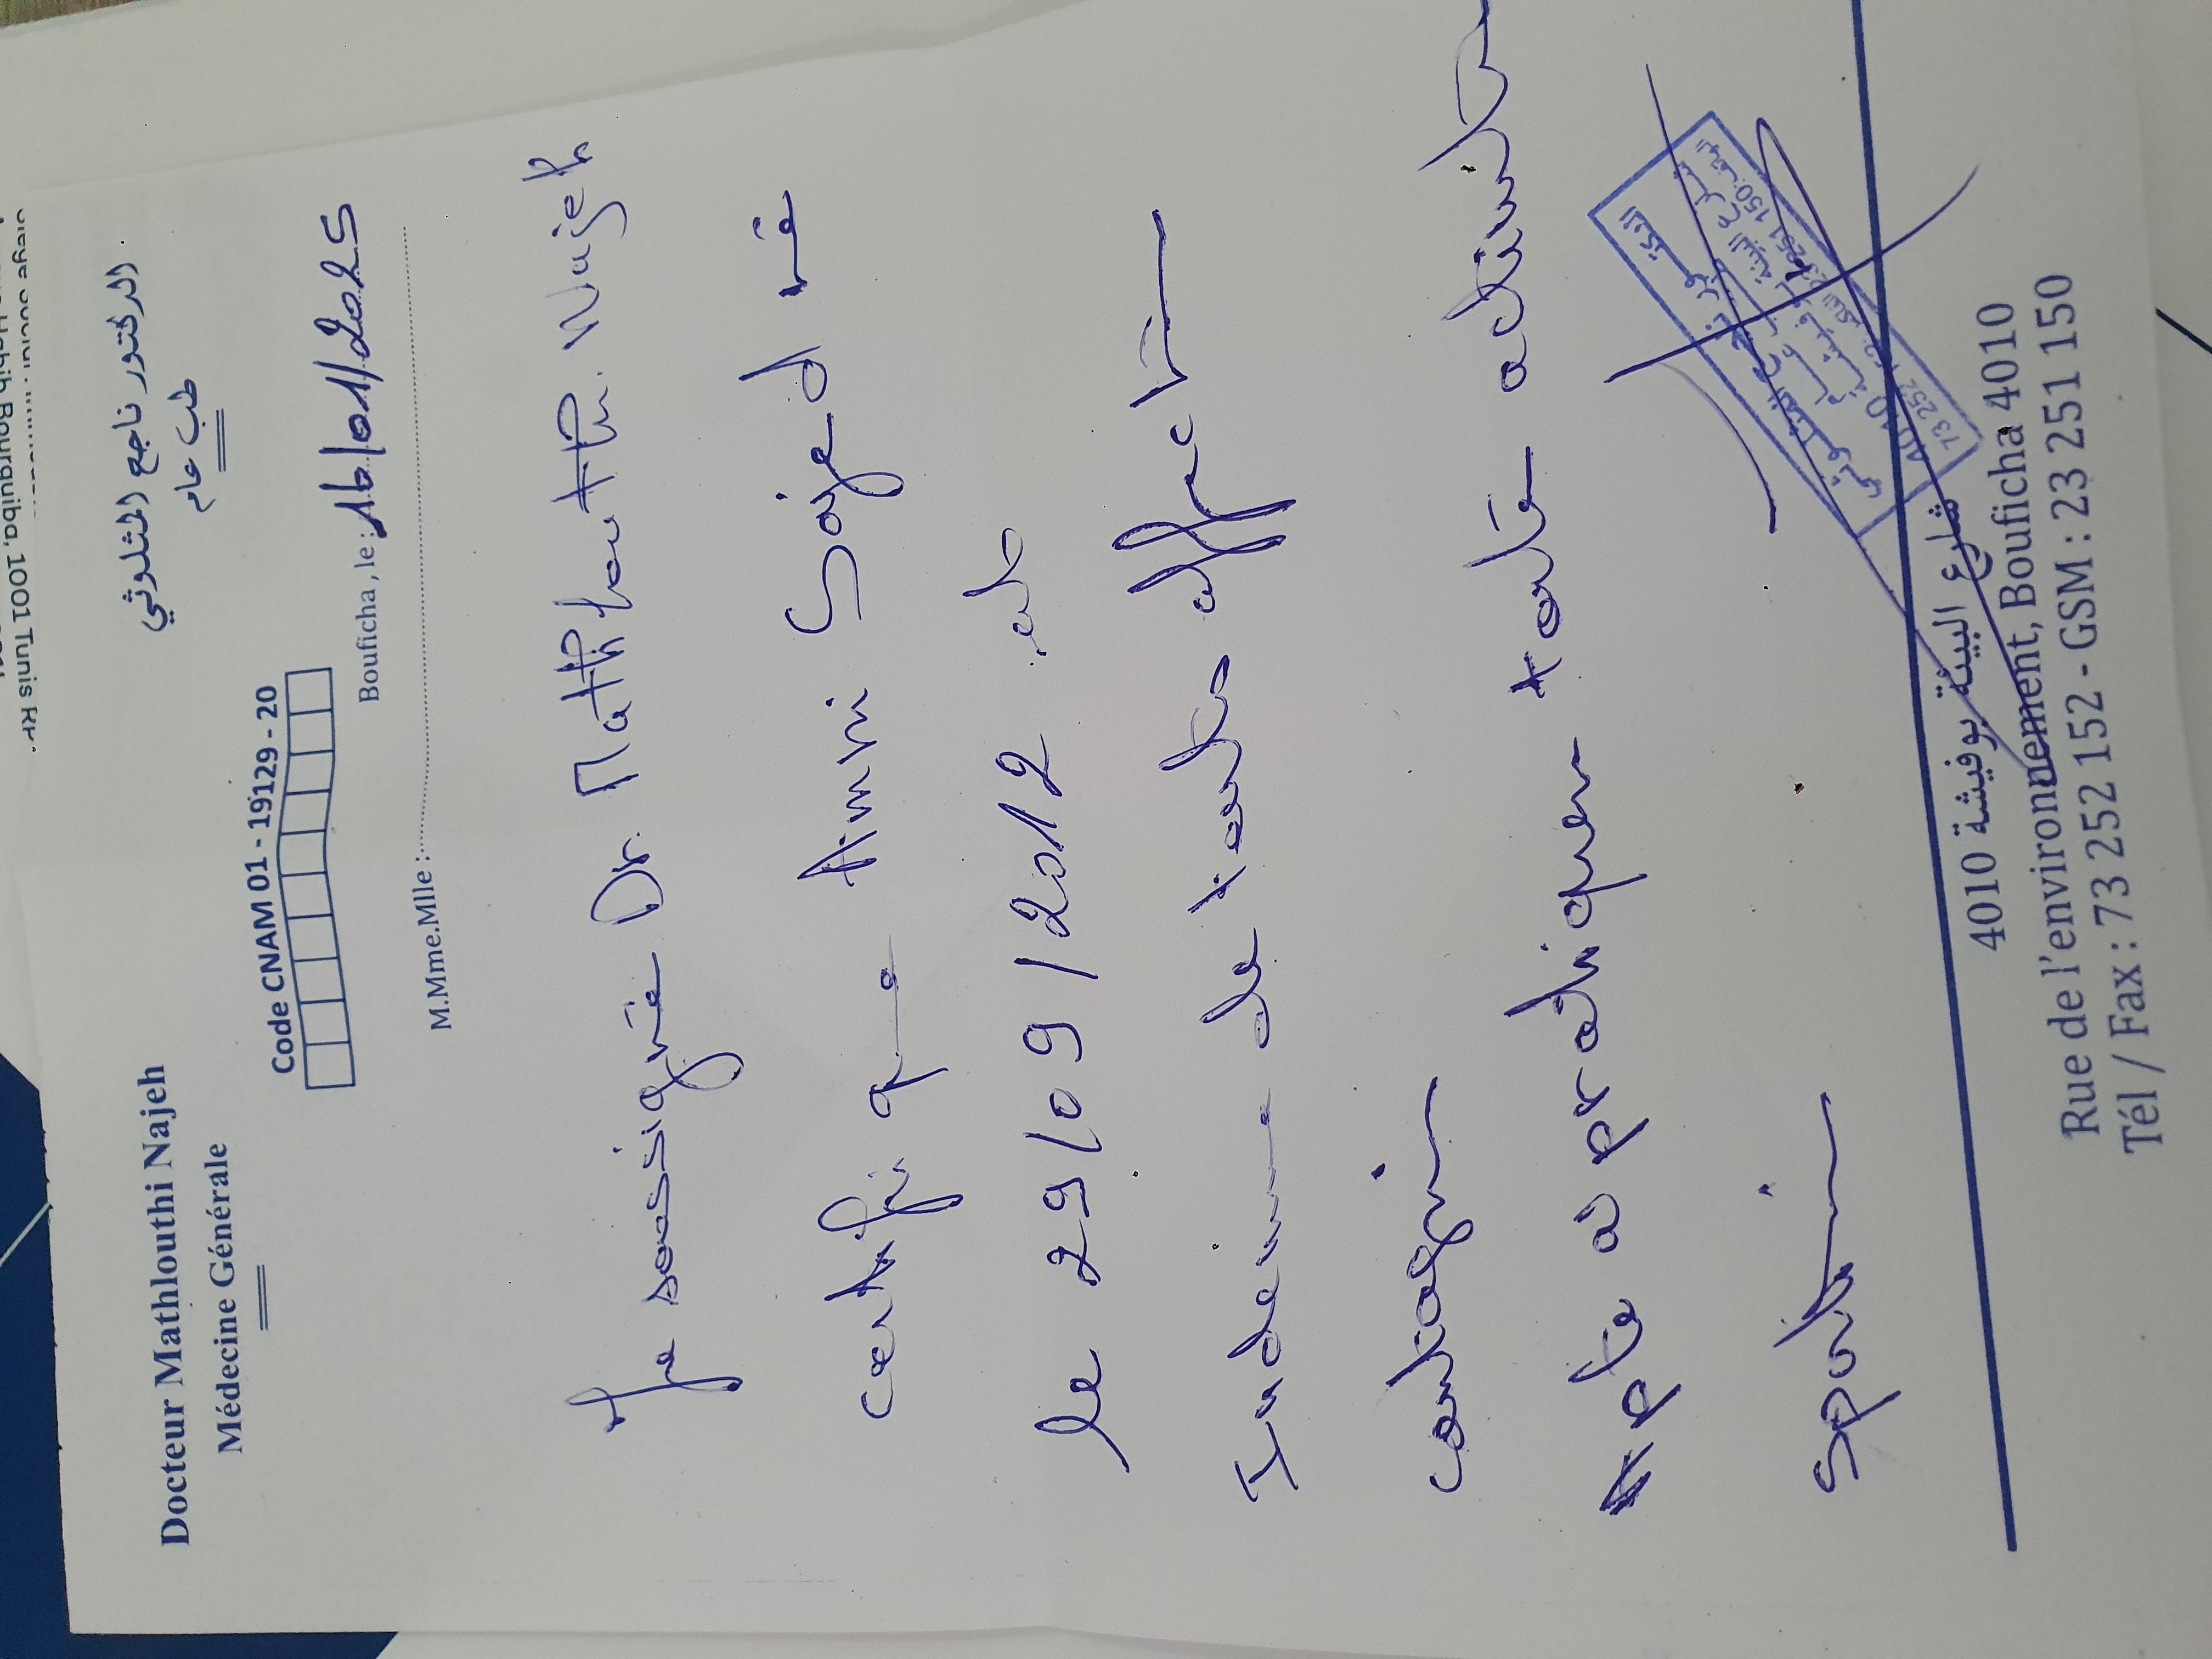 Habib Bourguiba, 1001 Tunis
Docteur Mathlouthi Najeh
Médecine Générale
الدكتور ناجع المثلوثي
طب عام
Code CNAM 01 - 19129 - 20
Bouficha, le : 16/01/2025
M.Mme.Mlle :
Je soussigné Dr Mathlouthi Najeh
certifie que Amri Sajed né
le 29/09/2012 est
Indemne de toute affection
contagieuse
apte à pratiquer toute activité
sportive
4010 شارع البيئة بوفيشة
Rue de l'environnement, Bouficha 4010
Tél / Fax : 73 252 152 - GSM : 23 251 150